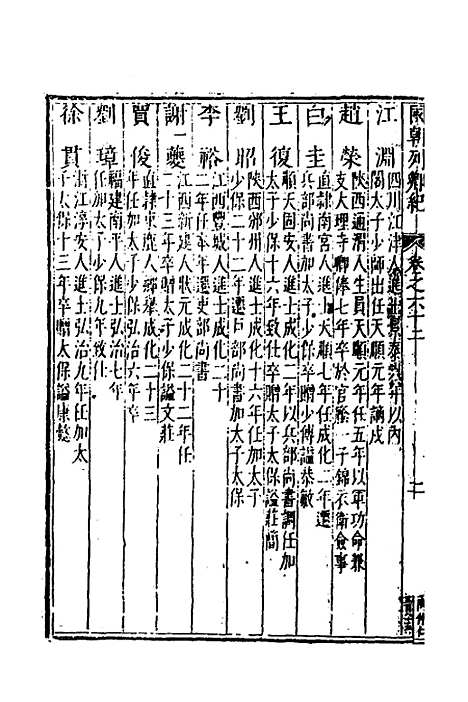 國朝列卿紀 卷之六十二 二
江淵 四川江津人進士景泰六年以內
閣太子少師出任天順元年謫戍
趙榮 陝西通渭人生員天順元年任五年以軍功命兼
支大理寺卿俸七年卒於官廕一子錦衣衛僉事
白圭 直隸南宮人進士天順七年任成化二年遷
兵部尚書加太子少保卒贈少傅謚恭敏
王復 順天固安人進士成化二年以兵部尚書調任加
太子少保十六年致仕卒贈太子太保謚莊簡
劉昭 陝西邠州人進士成化十六年任加太子
少保二十二年遷戶部尚書加太子太保
李裕 江西豐城人進士成化二十
二年任本年遷吏部尚書
謝一夔 江西新建人狀元成化二十二年任
二十三年卒贈太子少保謚文莊
賈俊 直隸束鹿人經舉成化二十三
年任加太子少保弘治六年卒
劉璋 福建南平人進士弘治七年
任加太子少保九年致仕
徐貫 浙江淳安人進士弘治九年任加太
子太保十三年卒贈太保謚康懿